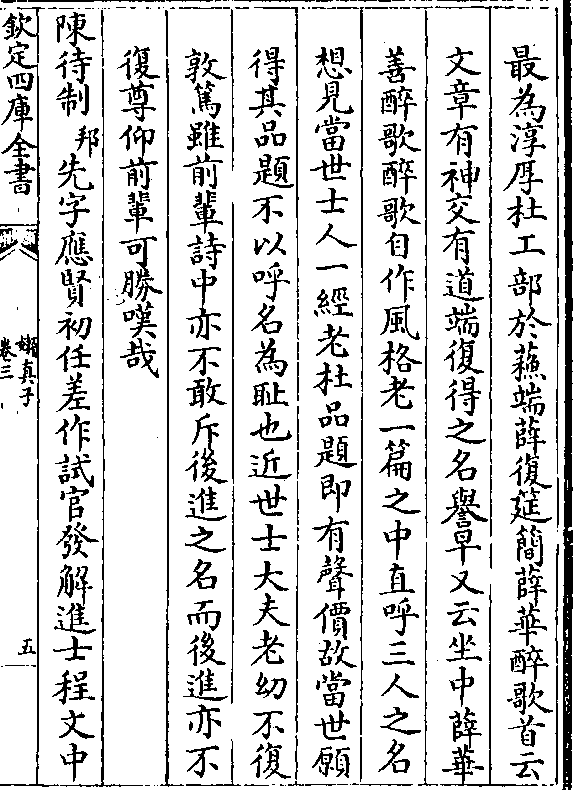 最為淳厚杜工部於蘓端薛復筵簡薛華醉歌首云
文章有神交有道端復得之名譽早又云坐中薛華
善醉歌醉歌自作風格老一篇之中直呼三人之名
想見當世士人一經老杜品題即有聲價故當世願
得其品題不以呼名為耻也近世士大夫老幼不復
敦篤雖前輩詩中亦不敢斥後進之名而後進亦不
復尊仰前輩可勝嘆哉
陳待制邦先字應賢初任差作試官發解進士程文中
欽定四庫全書
嬾真子
卷三
五